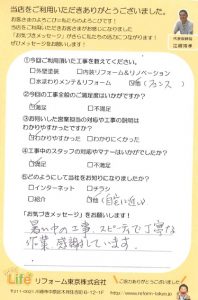 当店をご利用いただきありがとうございました。
当店をご利用いただきお客さまがお感じになりました
「お気づきメッセージ」が私たちの活力につながります!
ぜひメッセージをお願いします!
①今回ご利用いただいた工事を教えてください。
□外壁塗装 □内装リフォーム&リノベーション
□水まわりメンテ&リフォーム (フェンス)
②今回の工事全般のご満足度はいかがですか?
満足 □不満足
③お伺いした営業担当の対応や工事の説明は
わかりやすかったですか?
わかりやすかった □わかりにくかった
④工事中のスタッフの対応やマナーはいかがでしたか?
満足 □不満足
⑤どのようにして当社をお知りになりましたか?
□インターネット □チラシ
□紹介 他(自宅に近い)
「お気づきメッセージ」をお願いします!
暑い中の工事、スピーディで丁寧な
作業、感謝しています。
Life
リフォーム東京株式会社